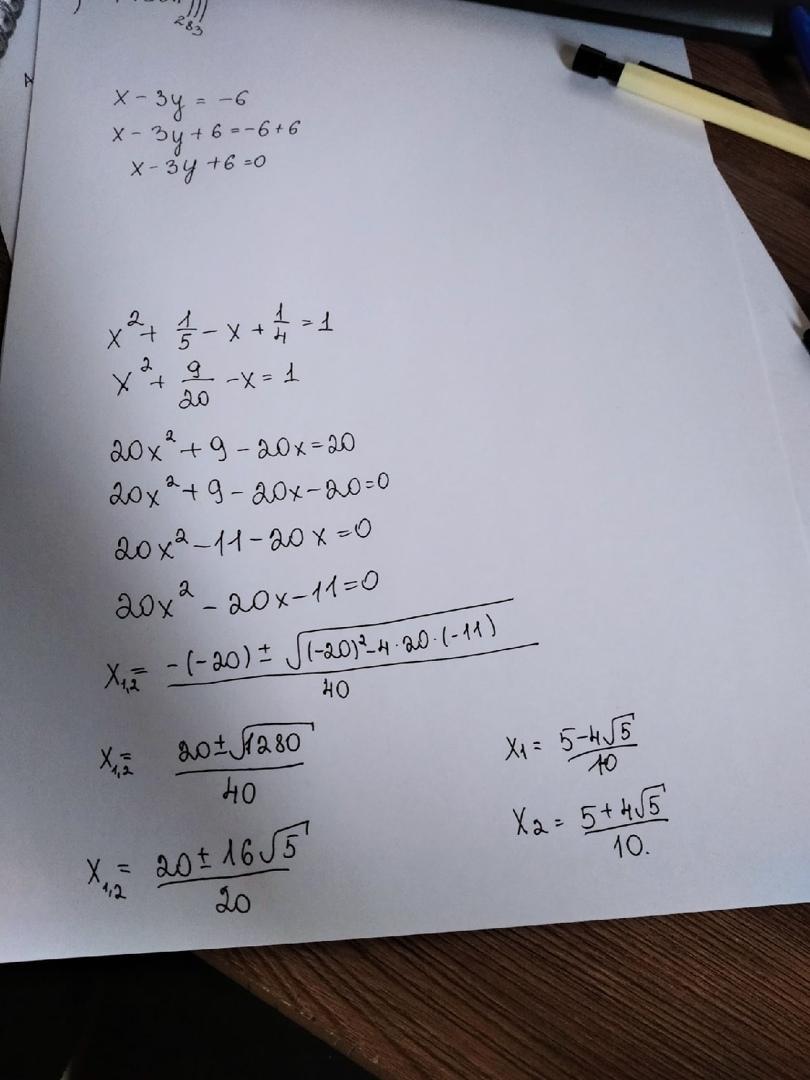 283
x - 3y = -6
x - 3y + 6 = -6 + 6
x - 3y + 6 = 0
x² + 1/5 - x + 1/4 = 1
x² + 9/20 - x = 1
20x² + 9 - 20x = 20
20x² + 9 - 20x - 20 = 0
20x² - 11 - 20x = 0
20x² - 20x - 11 = 0
x₁,₂ = (-(-20) ± √((-20)² - 4·20·(-11)))/40
x₁,₂ = (20 ± √1280)/40
x₁,₂ = (20 ± 16√5)/20
x₁ = (5 - 4√5)/10
x₂ = (5 + 4√5)/10.